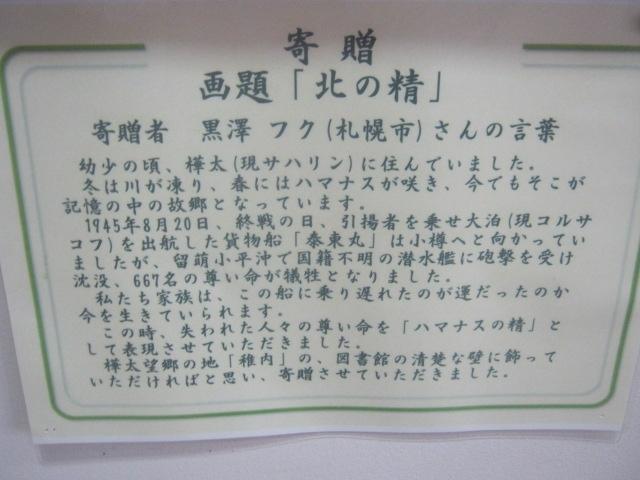 寄贈
画題「北の精」
寄贈者 黒澤 フク(札幌市)さんの言葉
幼少の頃、樺太(現サハリン)に住んでいました。
冬は川が凍り、春にはハマナスが咲き、今でもそこが
記憶の中の故郷となっています。
1945年8月20日、終戦の日、引揚者を乗せ大泊(現コルサ
コフ)を出航した貨物船「泰東丸」は小樽へと向かってい
ましたが、留萌小平沖で国籍不明の潜水艦に砲撃を受け
沈没、667名の尊い命が犠牲となりました。
私たち家族は、この船に乗り遅れたのが運だったのか
今を生きていられます。
この時、失われた人々の尊い命を「ハマナスの精」と
して表現させていただきました。
樺太望郷の地「稚内」の、図書館の清楚な壁に飾って
いただければと思い、寄贈させていただきました。